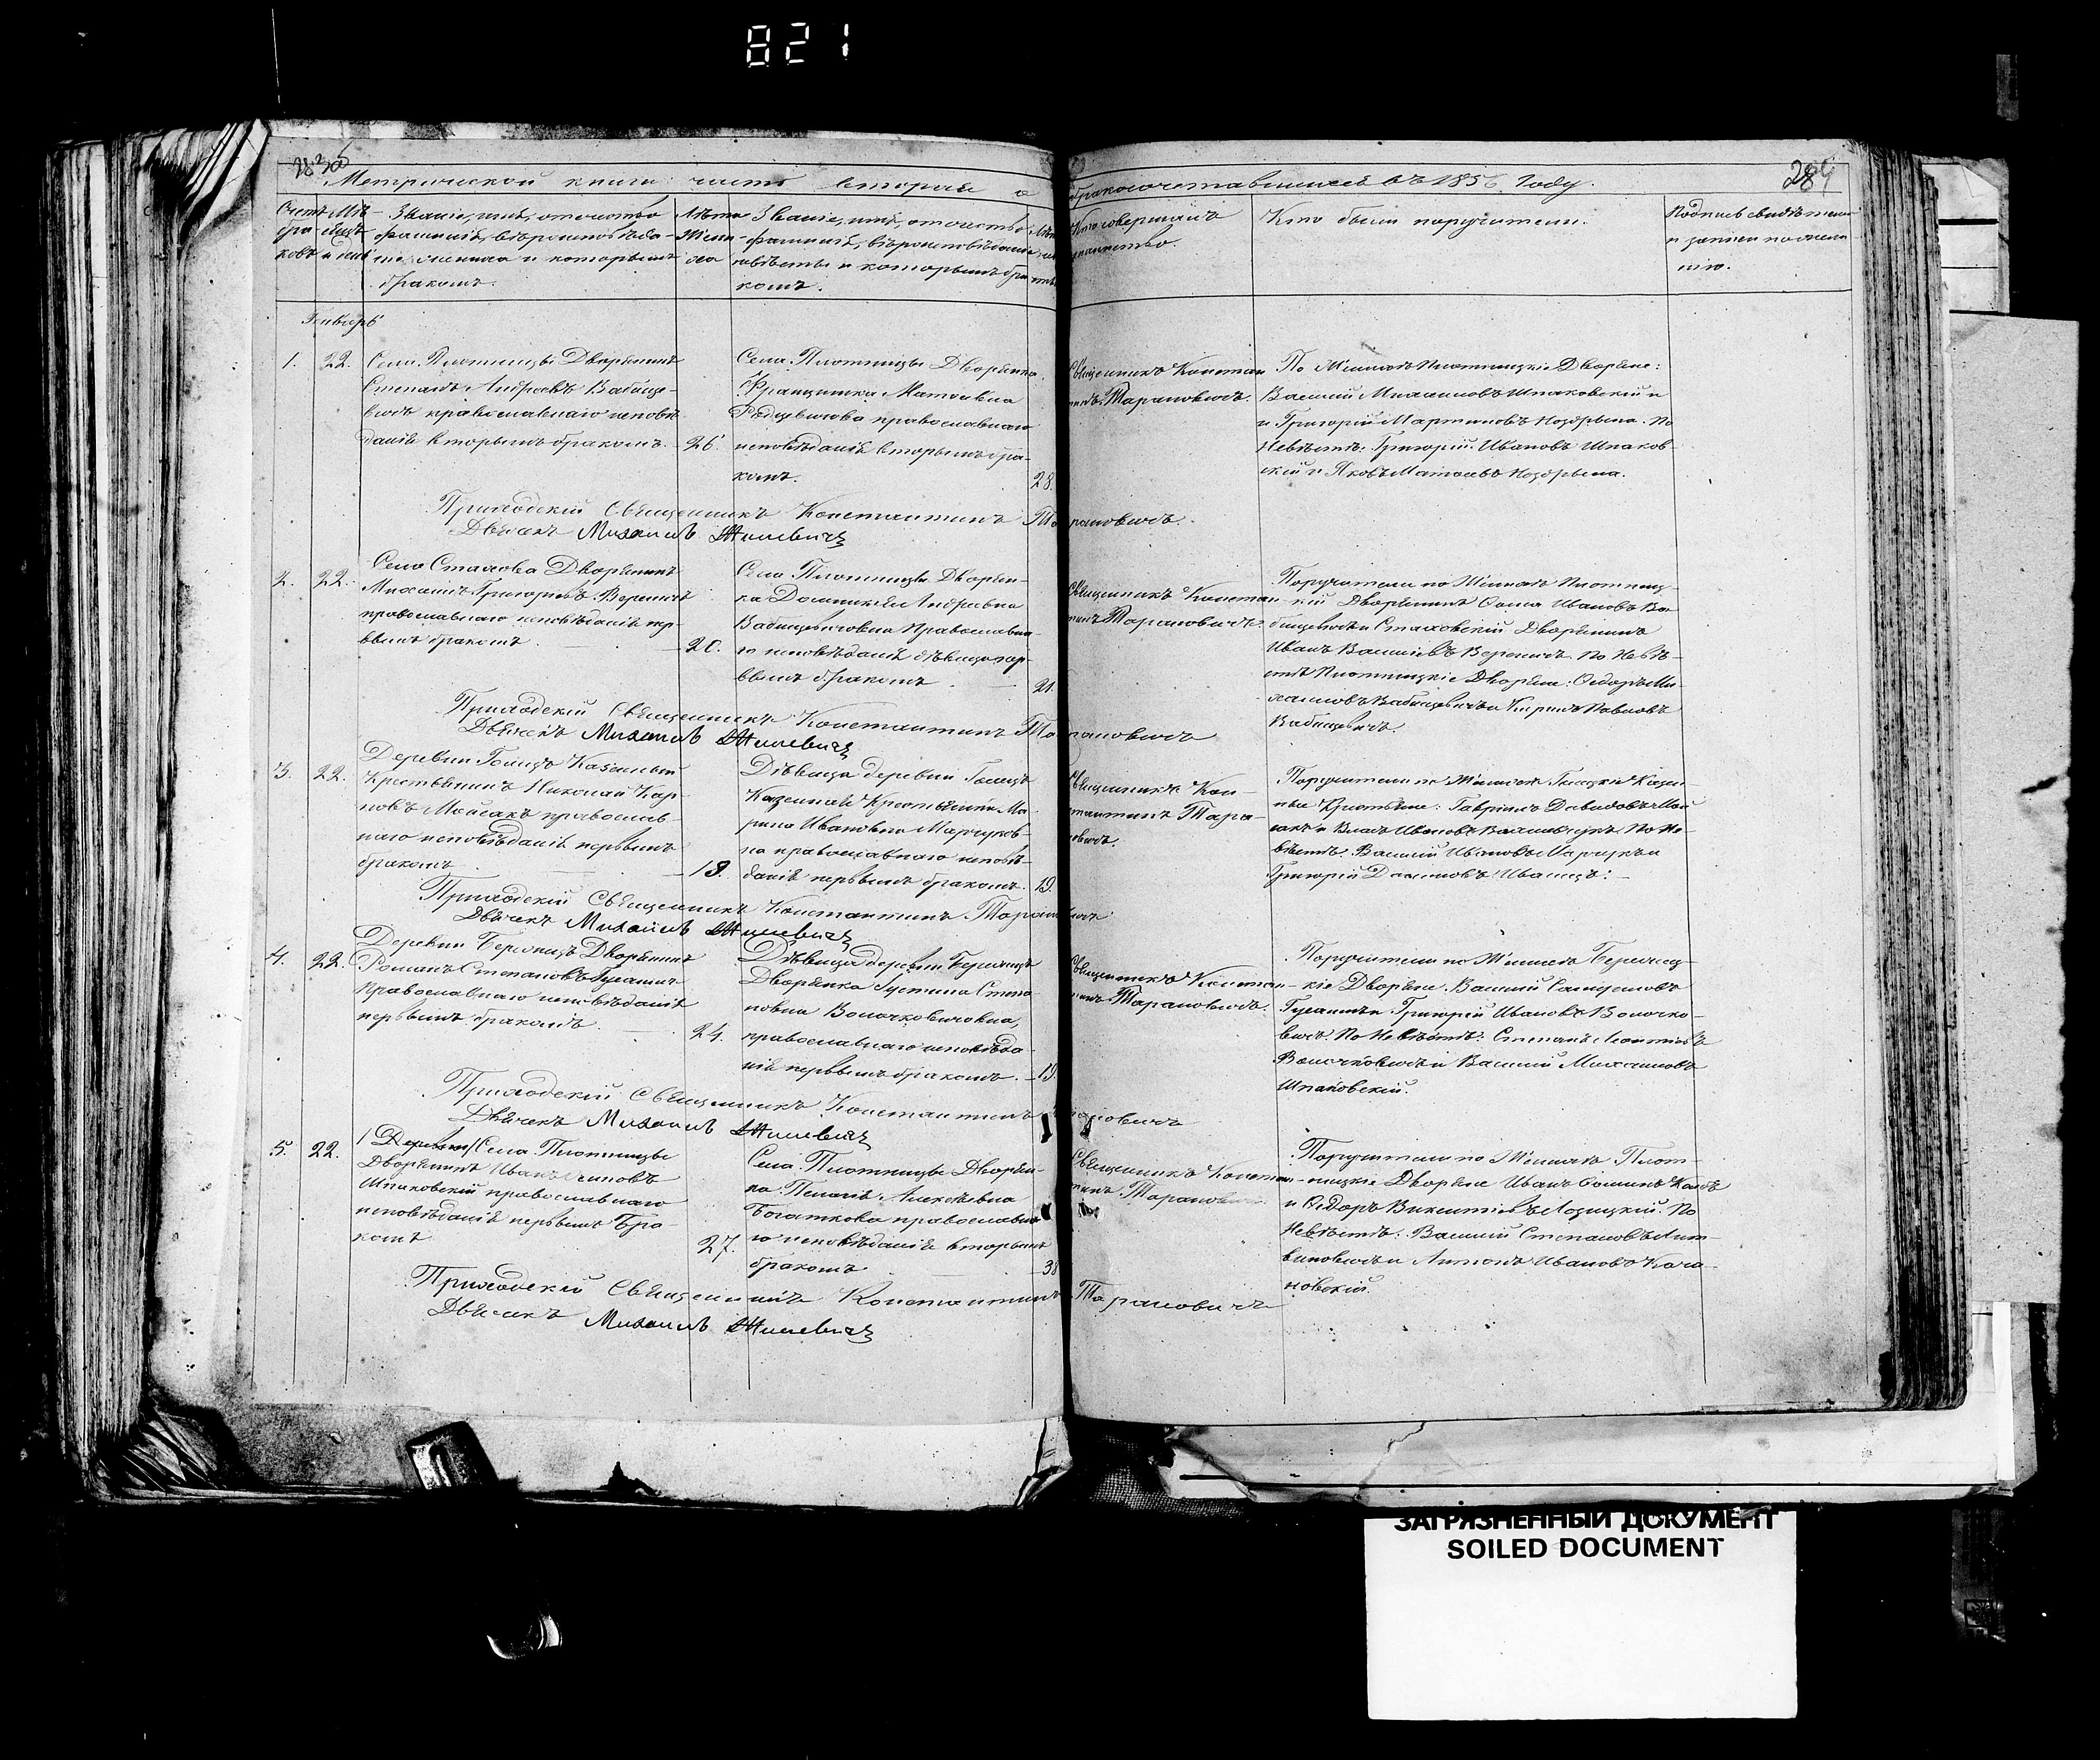 821
284
Метрической книги часть вторая о бракосочетавшихся въ 1856 году.
Счетъ браковъ
Мѣсяцъ и день
Званіе, имя, отчество
фамилія, вѣроисповѣда-
ніе жениха и которымъ
бракомъ.
Лѣта
Жени-
ха
Званіе, имя, отчество
фамилія, вѣроисповѣданіе
невѣсты и которымъ бра-
комъ.
Кто совершалъ
таинство.
Кто были поручители.
Подпись свидѣтелей
и записи по жела-
нію.
Генварь
1. 22.
Села Плотницы Дворянинъ
Степанъ Андреевъ Бабице-
вичъ православнаго исповѣ-
данія вторымъ бракомъ. 26.
Села Плотницы Дворянка
Францишка Матѳеевна
православнаго
исповѣданія вторымъ бра-
комъ. 28.
Священникъ Констан
тинъ Тарановичъ.
По Женихѣ Плотницкіе Дворяне:
Василій Михаиловъ Шпаковскій и
и Григорій Мартиновъ Ноздрына. По
Невѣстѣ: Григорій Ивановъ Шпаков-
скій и Яковъ Матѳеевъ Ноздрына.
Приходскій Священникъ Константинъ Тарановичъ.
Дьячекъ Михаилъ
2. 22.
Село Стахова Дворянинъ
Михаилъ Григорьевъ Вереничъ
православнаго исповѣданія пер-
вымъ бракомъ 20.
Села Плотницы Дворян-
ка Доминикія Андреевна
Бабицевичовна Православна-
го исповѣданія дѣвица пер-
вымъ бракомъ 21.
Священникъ Констан-
тинъ Тарановичъ.
Поручители по Женихѣ Плотниц-
кій Дворянинъ Ивановъ Ба-
бицевичъ и Стаховскій Дворянинъ
Иванъ Василіевъ Вереничъ. По Невѣ-
стѣ Плотницкіе Дворяне: Ѳедоръ Ми-
хаиловъ Бабицевичъ и Киріилъ Павловъ
Бабицевичъ.
Приходскій Священникъ Константинъ Тарановичъ
Дьячекъ Михаилъ
3. 22.
Деревни Казенный
Крестьянинъ Николай Кар-
повъ Мойсакъ православ-
наго исповѣданія первымъ
бракомъ 18.
Дѣвица деревни
Казенная Крестьянка Ма-
рина Ивановна
на православнаго исповѣ-
данія первымъ бракомъ. 19.
Священникъ Кон-
стантинъ Тара-
новичъ.
Поручители по Женихѣ Казен-
ные Крестьяне: Гавріилъ Давидовъ Мой
сакъ и Власъ Ивановъ По Не-
вѣстѣ: Василій Ивановъ и
Григорій
Приходскій Священникъ Константинъ Тарановичъ
Дьячекъ Михаилъ
4. 22.
Деревни Дворянинъ
Романъ Степановъ Гусакъ
Православнаго исповѣданія
первымъ бракомъ. 24.
Дѣвица деревни
Дворянка Іустина Степа
новна Волочковичовна,
православнаго исповѣда-
нія первымъ бракомъ. 19.
Священникъ Констан-
тинъ Тарановичъ.
Поручители по Женихѣ
кіе Дворяне. Василій Самуиловъ
Григорій Ивановъ Волочко-
вичъ. По Невѣстѣ: Степанъ Леонтіевъ
Волочковичъ и Василій Михаиловъ
Шпаковскій.
Приходскій Священникъ Константинъ Тарановичъ
Дьячекъ Михаилъ
5. 22.
/Деревни/ Села Плотницы
Дворянинъ Иванъ
Шпаковскій православнаго
исповѣданія первымъ бра-
комъ 27.
Села Плотницы Дворян-
ка Пелагія Алексѣевна
Богаткова православна
го исповѣданія вторымъ
бракомъ 38
Священникъ Констан-
тинъ Тарановичъ
Поручители по Женихѣ Плот-
ницкіе Дворяне Иванъ
и Ѳедоръ Викентіевъ Лозицкій. По
Невѣстѣ: Василій Степановъ Лит-
виновичъ и Антонъ Ивановъ Кача-
новскій.
Приходскій Священникъ Константинъ Тарановичъ
Дьячекъ Михаилъ
ЗАГРЯЗНЕННЫЙ ДОКУМЕНТ
SOILED DOCUMENT